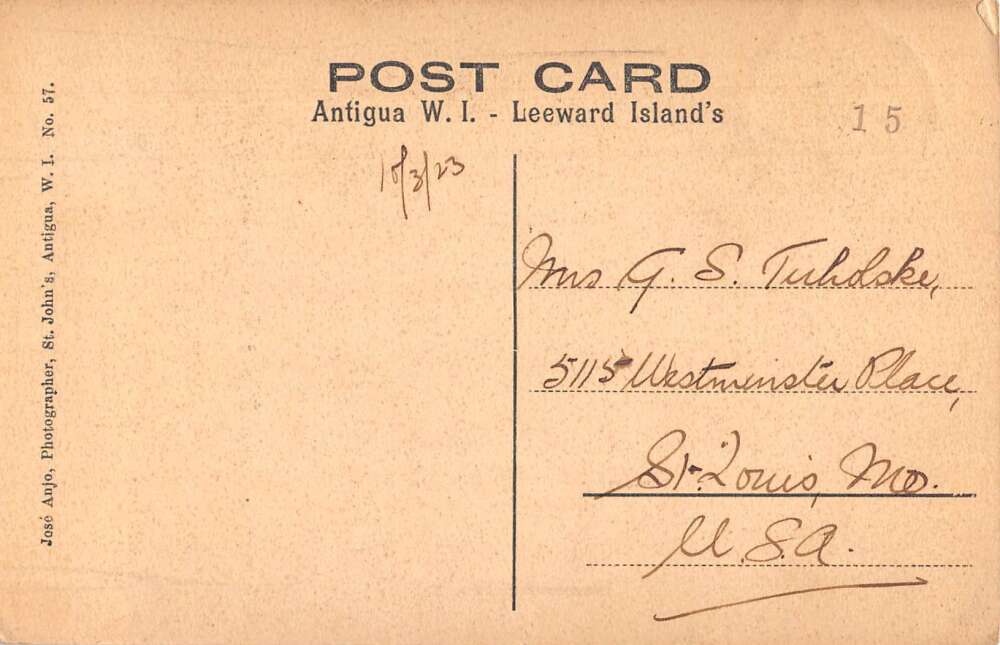 POST CARD
Antigua W. I. - Leeward Island's
15
José Anjo, Photographer, St. John's, Antigua, W. I. No. 57.
18/3/23
Mrs G. S. Tuholske,
5115 Westminster Place,
St. Louis, Mo.
U.S.A.